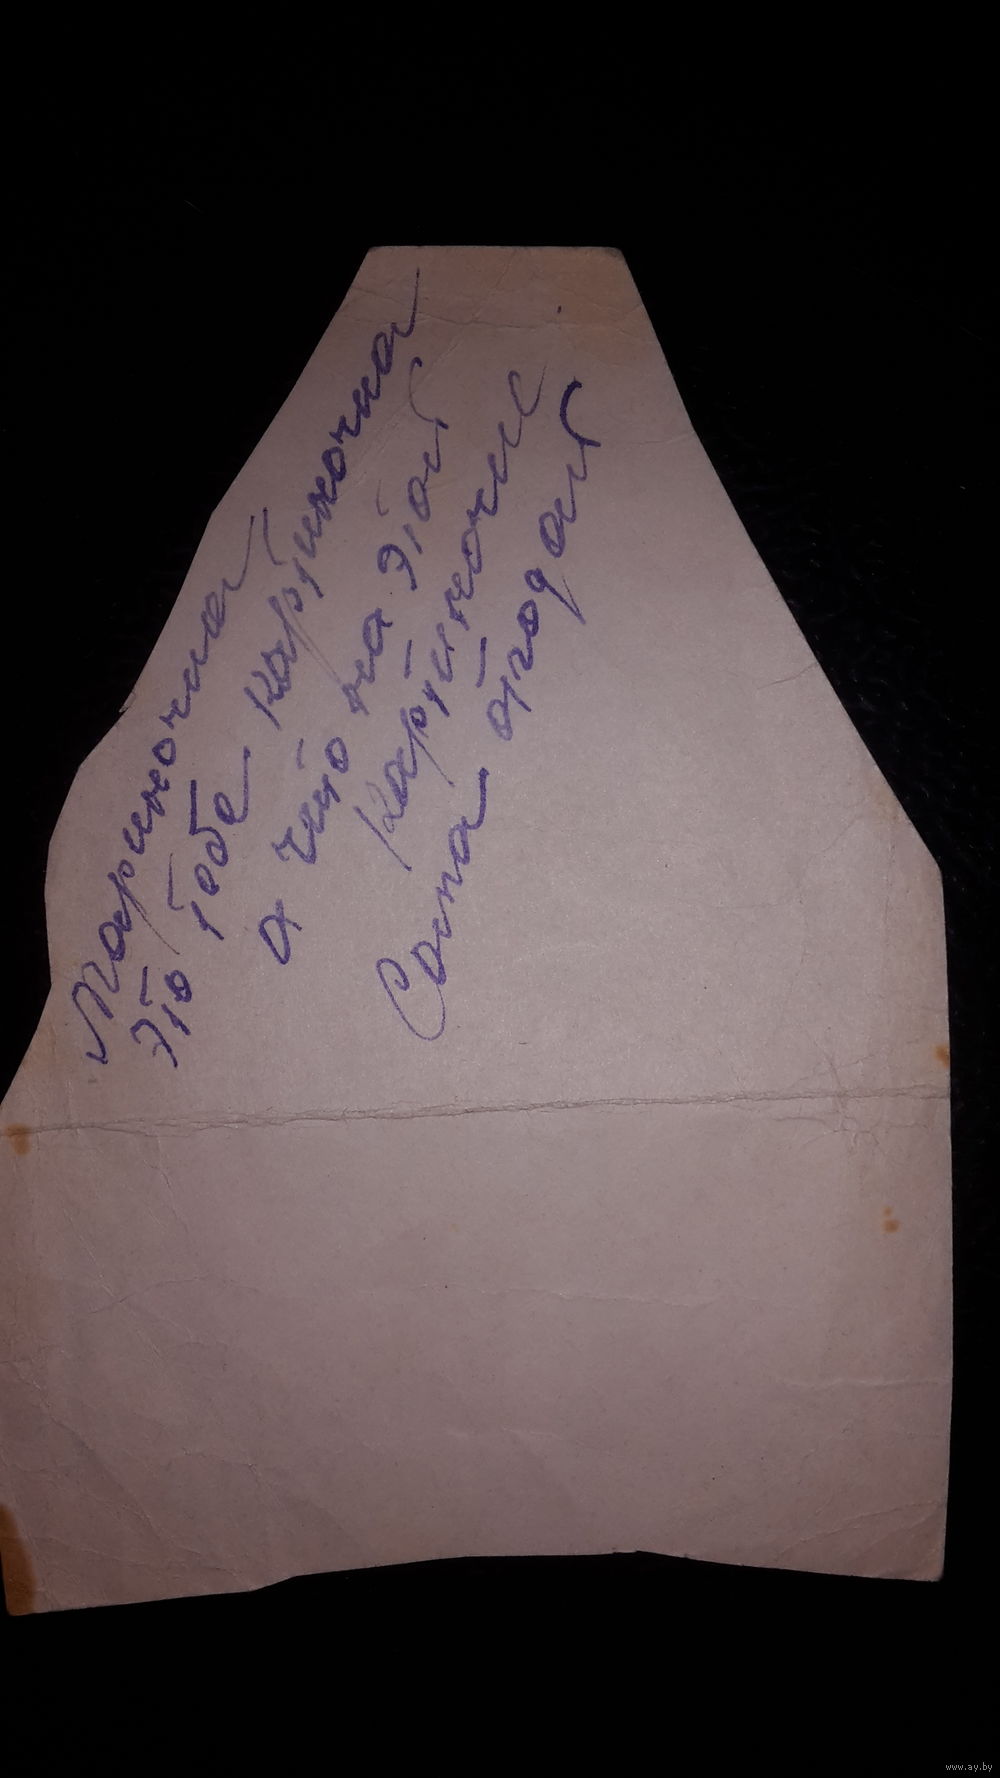 Мариночка!
Это тебе картиночка
а что на этой
картиночке
Сама отгодай
www.ay.by